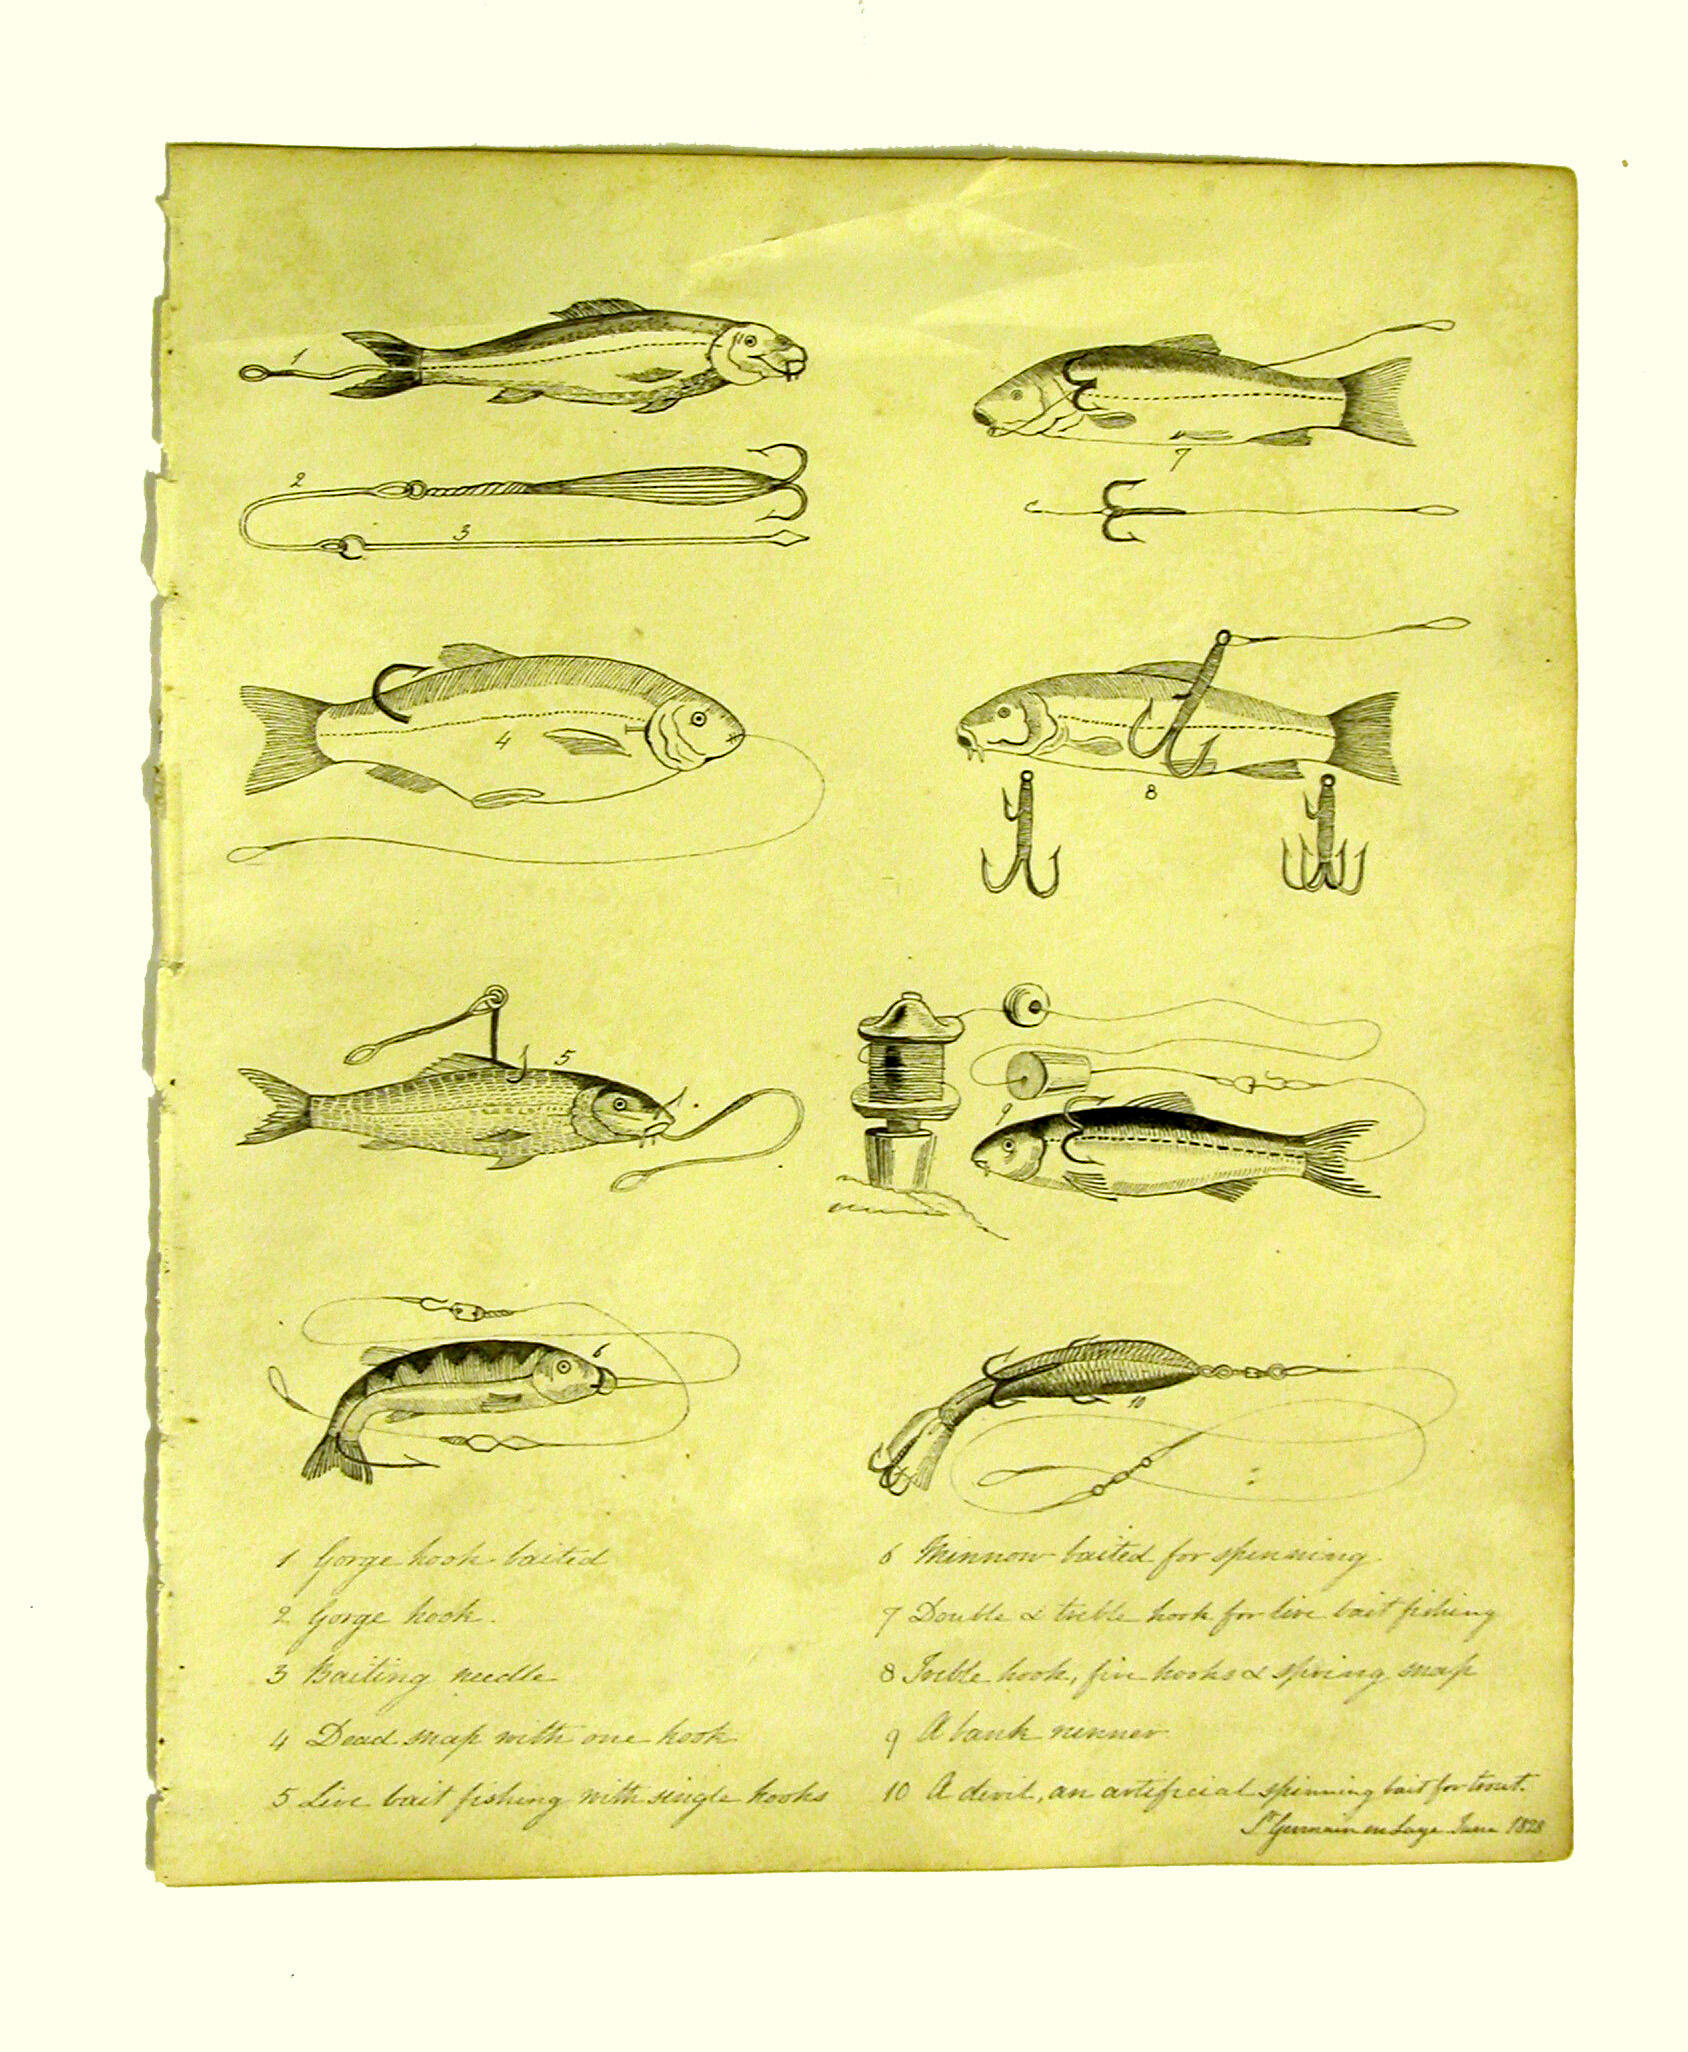 1
2
3
4
5
6
7
8
9
10
1 Gorge hook baited
2 Gorge hook.
3 Baiting needle
4 Dead snap with one hook
5 Live bait fishing with single hooks
6 Minnow baited for spinning
7 Double & treble hook for live bait fishing
8 Treble hook, five hooks & spring snap
9 A bank runner
10 A devil, an artificial spinning bait for trout.
St Germain en Laye June 1828